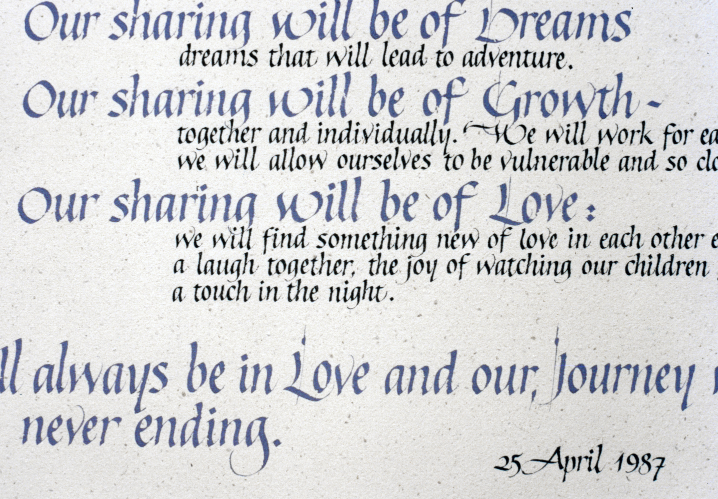 Our sharing will be of Dreams
dreams that will lead to adventure.
Our sharing will be of Growth -
together and individually. We will work for ea
we will allow ourselves to be vulnerable and so clo
Our sharing will be of Love:
we will find something new of love in each other e
a laugh together, the joy of watching our children
a touch in the night.
ll always be in Love and our Journey
never ending.
25 April 1987